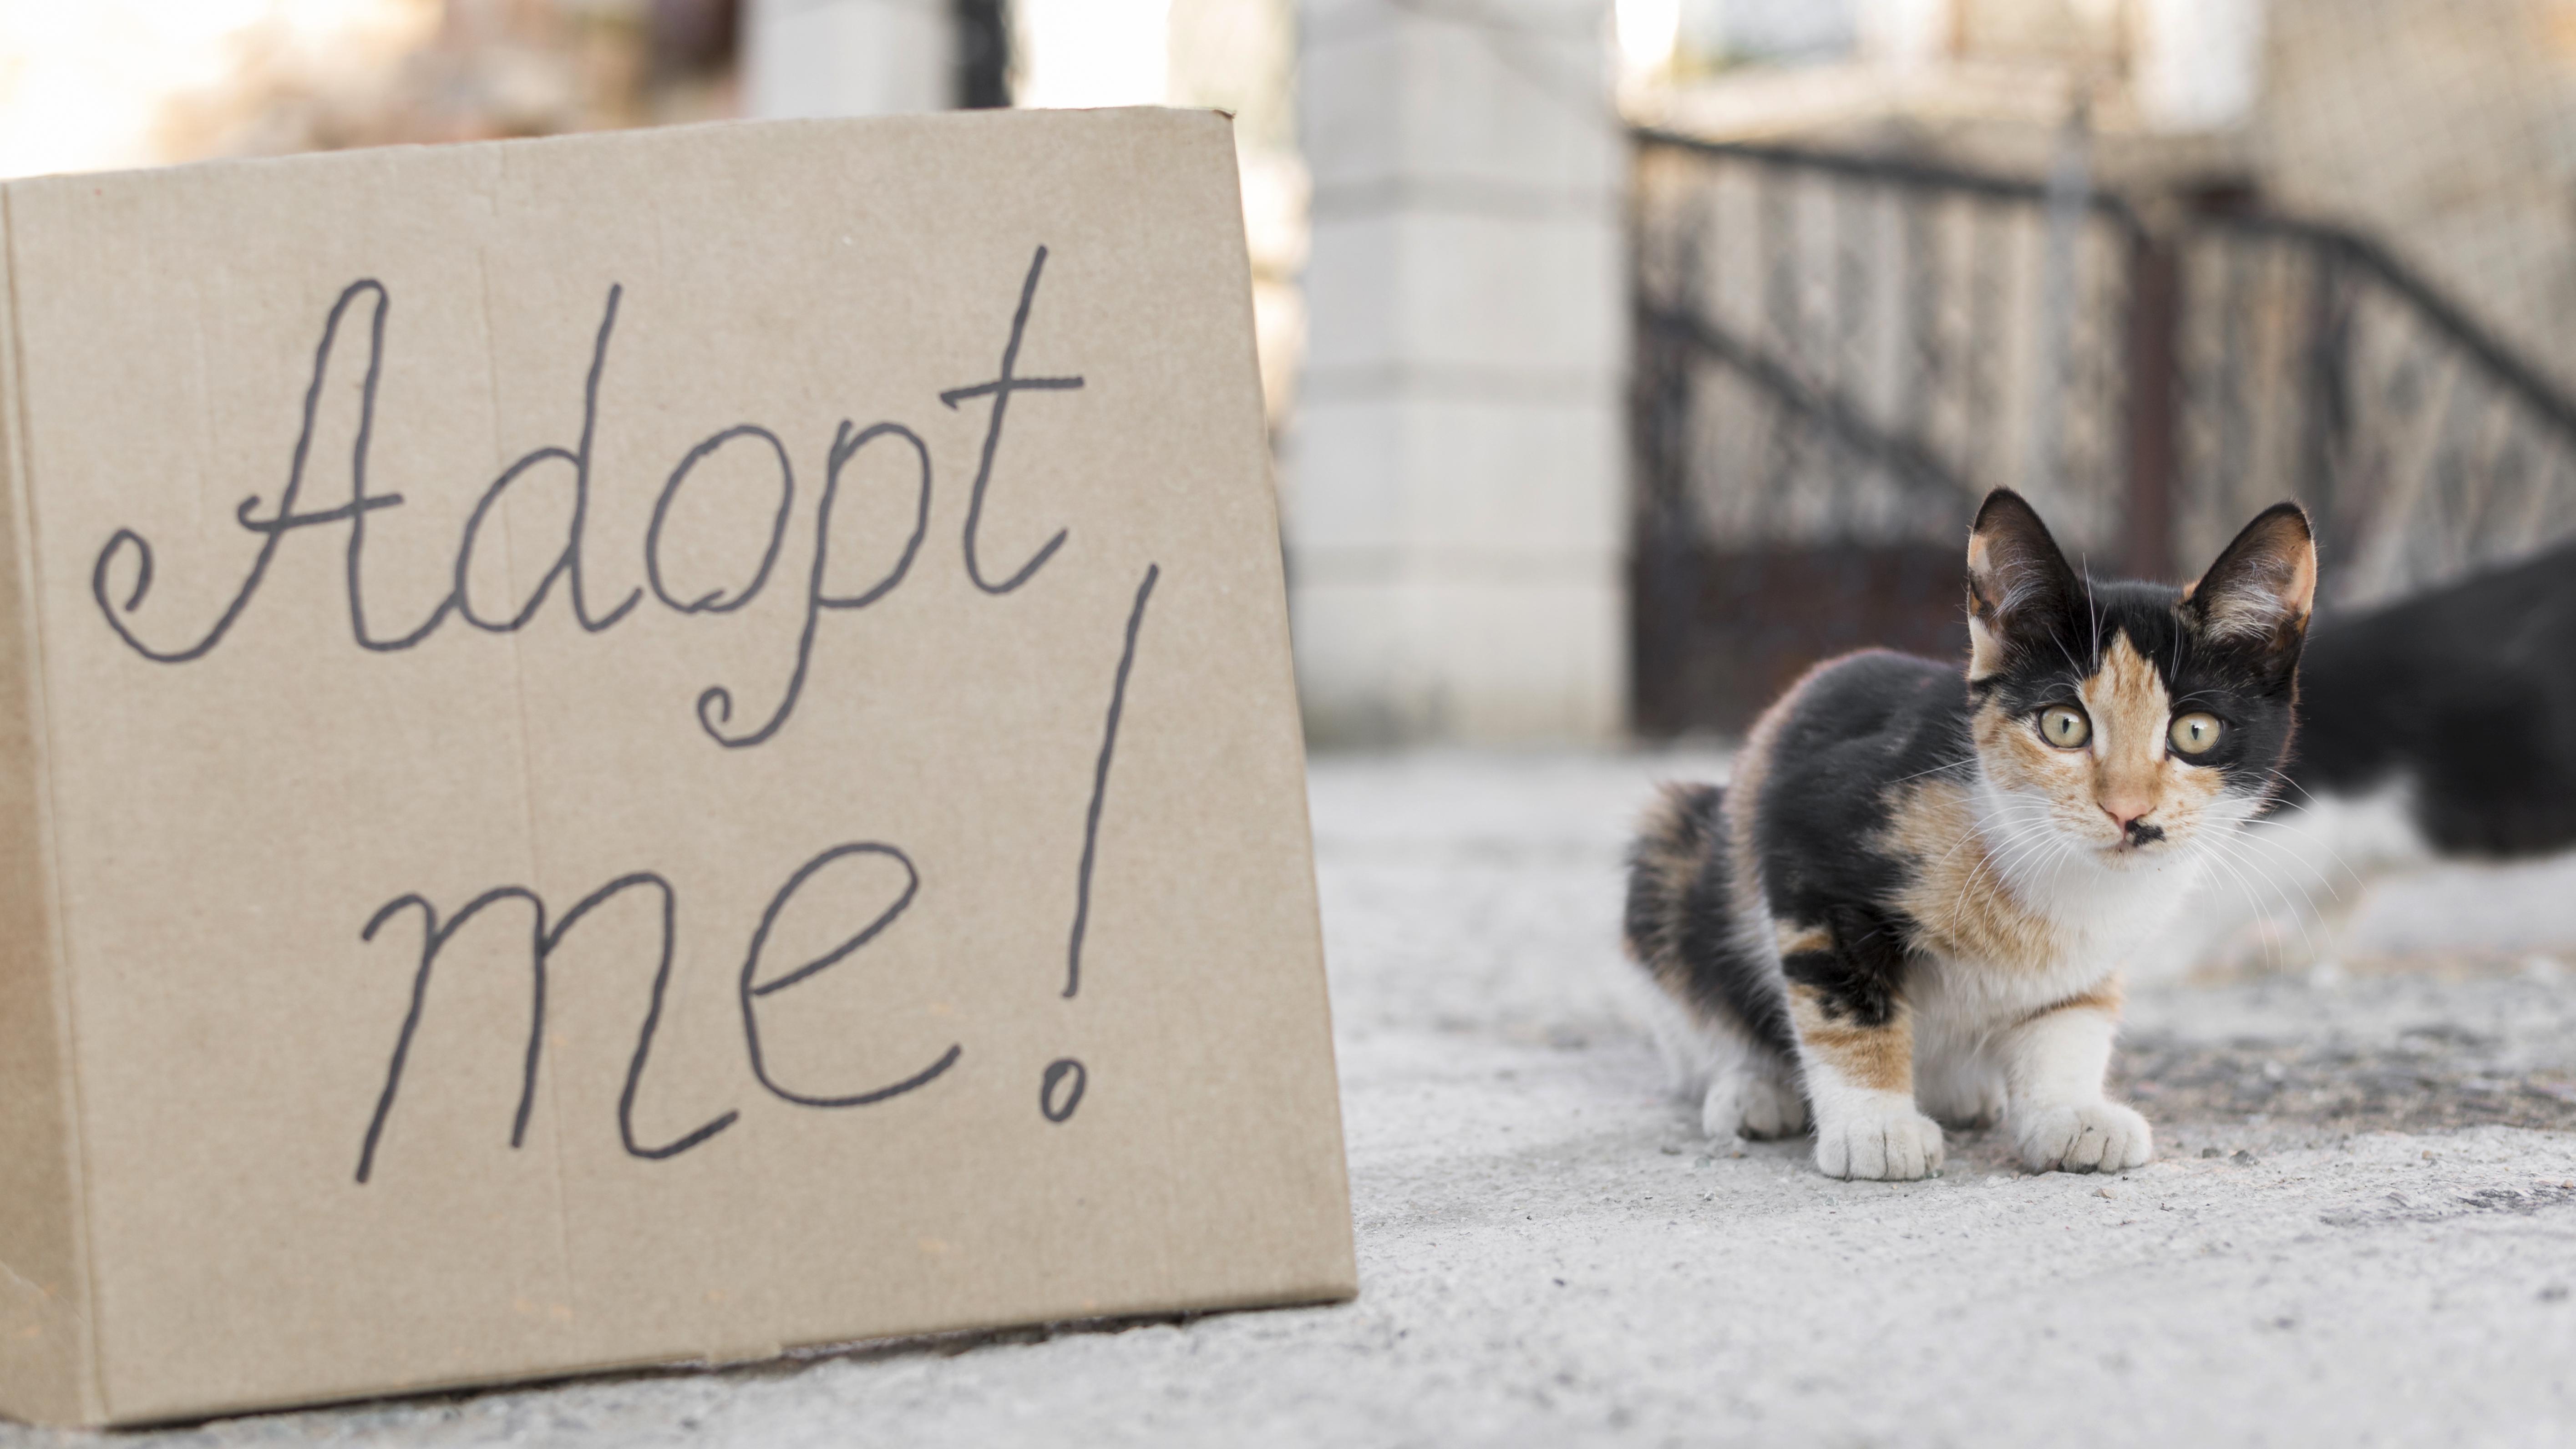 Adopt
me!